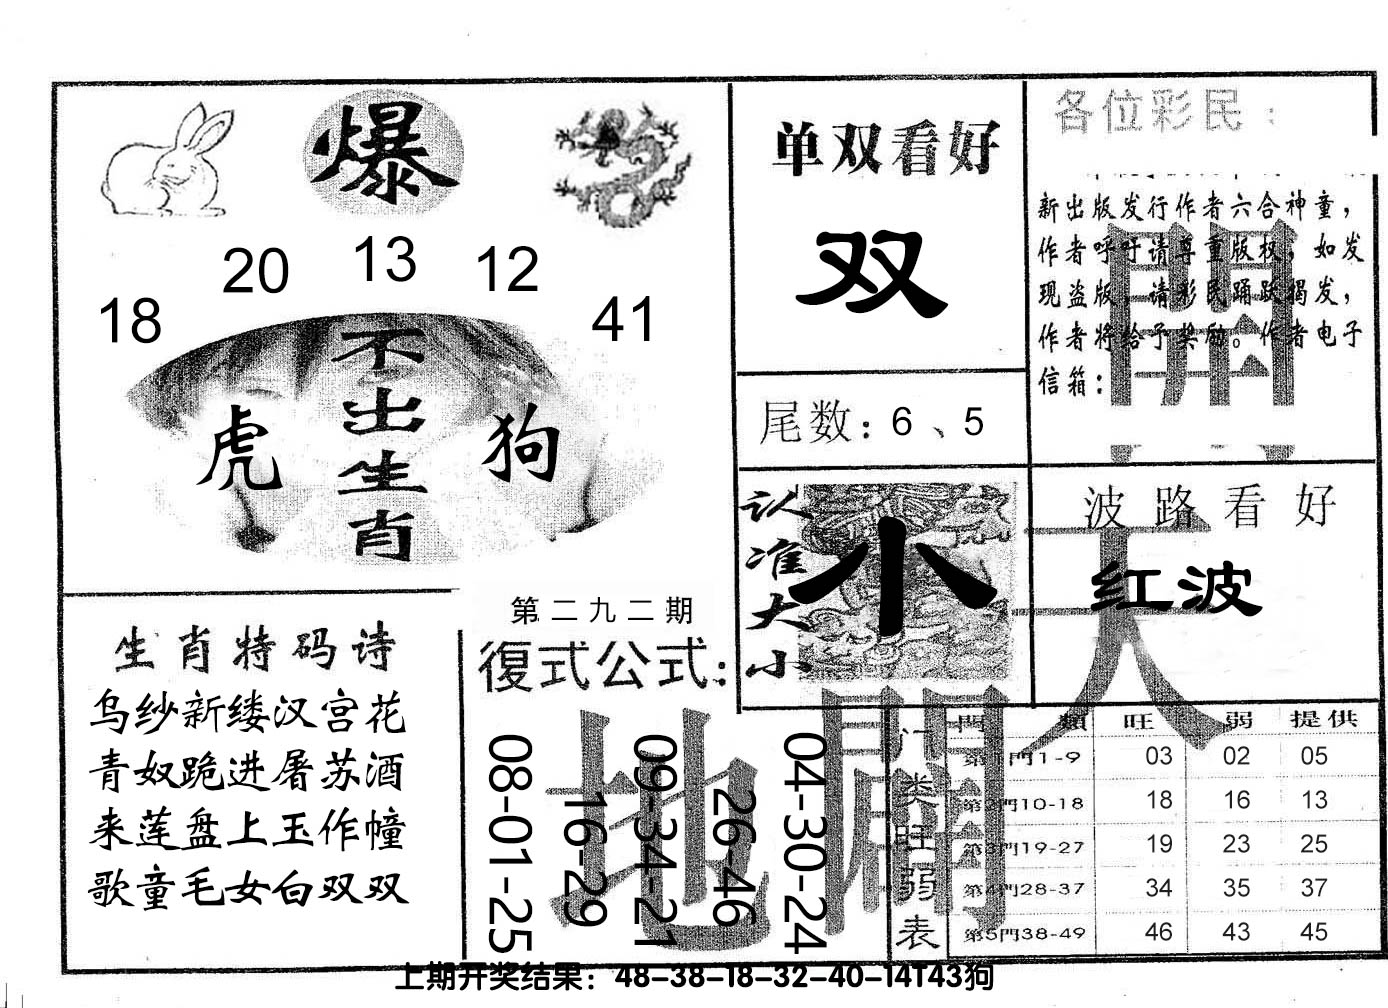 爆
18
20
13
12
41
不出生肖
虎
狗
单双看好
双
尾数：6、5
认准大小
小
各位彩民：
新出版发行作者六合神童，
作者呼吁请尊重版权，如发
现盗版，请彩民踊跃揭发，
作者将给予奖励。作者电子
信箱：
開
波路看好
红波
天
生肖特码诗
乌纱新缕汉宫花
青奴跪进屠苏酒
来莲盘上玉作幢
歌童毛女白双双
第二九二期
復式公式：
08-01-25
16-29
09-34-21
26-46
04-30-24
地
门类旺弱表
門 類 旺 弱 提供
第1門1-9 03 02 05
第2門10-18 18 16 13
第3門19-27 19 23 25
第4門28-37 34 35 37
第5門38-49 46 43 45
上期开奖结果：48-38-18-32-40-14T43狗